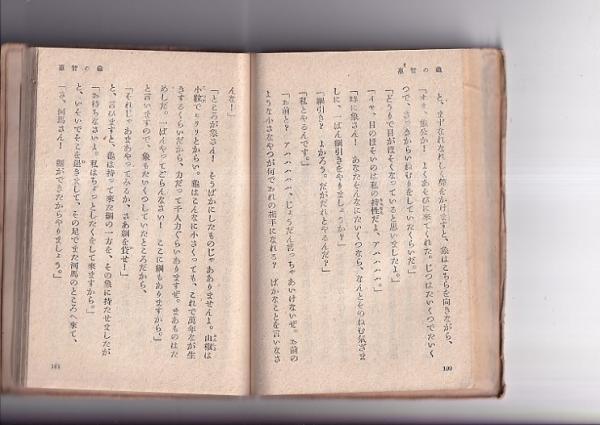 龜の智慧
と、まずなれなれしく聲をかけますと、象はこちらを向きながら、
「オオ、龜公か！　よくあそびに來てくれた。じつはたいくつでたいく
つで、さっきからいねむりをしていたくらいだ。」
「どうりで目がほそくなっていると思いましたよ。」
「イヤ、目のほそいのは私の持性だよ、アハハハハ。」
「時に象さん！　あなたそんなにたいくつなら、なんとそのねむ氣ざま
しに、一ばん綱引きをやりましょうか？」
「綱引き？　よかろう。だがだれとやるんだ？」
「私とやるんです。」
「お前と？　アハハハハ、じょうだん言っちゃあいけないぜ。お前の
ような小さなやつが何でおれの相手になれる？　ばかなことを言いなさ
100
龜の智慧
んな！」
「ところが象さん！　そうばかにしたものじゃありませんよ。山椒は
小粒でもヒリリとからい。龜はこんなに小さくっても、これで萬年なが生
きするくらいだから、力だって千人力ぐらいありますぜ。まあものはた
めしだ。一ばんやってごらんなさい！　ここに綱もありますから。」
と言いますので、象もたいくつしていたところだから、
「それじゃあまあやってみるか、さあ綱を貸せ！」
と、言ひますと、龜は持って來た綱の一方を、その象に持たせましたが
「お待ちなさいよ。私はちょっとしたくをして來ますから。」
と、いそいでそこを退きまして、その足でまた河馬のところへ來て、
「さ、河馬さん！　綱ができたからやりましょう。」
101